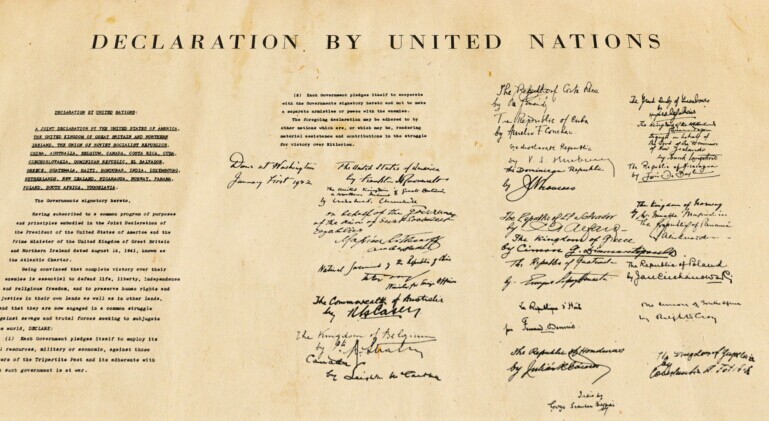 DECLARATION BY UNITED NATIONS
DECLARATION BY UNITED NATIONS:
A JOINT DECLARATION BY THE UNITED STATES OF AMERICA,
THE UNITED KINGDOM OF GREAT BRITAIN AND NORTHERN
IRELAND, THE UNION OF SOVIET SOCIALIST REPUBLICS,
CHINA, AUSTRALIA, BELGIUM, CANADA, COSTA RICA, CUBA,
CZECHOSLOVAKIA, DOMINICAN REPUBLIC, EL SALVADOR,
GREECE, GUATEMALA, HAITI, HONDURAS, INDIA, LUXEMBOURG,
NETHERLANDS, NEW ZEALAND, NICARAGUA, NORWAY, PANAMA,
POLAND, SOUTH AFRICA, YUGOSLAVIA.
The Governments signatory hereto,
Having subscribed to a common program of purposes
and principles embodied in the Joint Declaration of
the President of the United States of America and the
Prime Minister of the United Kingdom of Great Britain
and Northern Ireland dated August 14, 1941, known as
the Atlantic Charter.
Being convinced that complete victory over their
enemies is essential to defend life, liberty, independence
and religious freedom, and to preserve human rights and
justice in their own lands as well as in other lands,
and that they are now engaged in a common struggle
against savage and brutal forces seeking to subjugate
the world, DECLARE:
(1) Each Government pledges itself to employ its
resources, military or economic, against those
of the Tripartite Pact and its adherents with
such government is at war.
(2) Each Government pledges itself to cooperate
with the Governments signatory hereto and not to make
a separate armistice or peace with the enemies.
The foregoing declaration may be adhered to by
other nations which are, or which may be, rendering
material assistance and contributions in the struggle
for victory over Hitlerism.
Done at Washington
January First 1942
The United States of America
by Franklin D Roosevelt
The United Kingdom of Great Britain
& Northern Ireland
by Winston S. Churchill
on behalf of the Government
of the Union of Soviet Socialist
Republics
National Government of the Republic of China
Minister for Foreign Affairs
The Commonwealth of Australia
by R G Casey
The Kingdom of Belgium
by
Canada
by Leighton McCarthy
The Republic of Costa Rica
by
The Republic of Cuba
by Aurelio F. Concheso
by V. S. Hurban
The Dominican Republic
by
The Republic of El Salvador
by
The Kingdom of Greece
by Cimon
The Republic of Guatemala
by
La République d'Haiti
par Fernand Dennis
The Republic of Honduras
by Julián R Cáceres
India by
Girja Shankar Bajpai
The Grand Duchy of Luxembourg
by
The Kingdom of the Netherlands
by Frank Langstone
The Republic of Nicaragua
by
The Kingdom of Norway
by
The Republic of Panamá
by
The Republic of Poland
by Jan Ciechanowski
The Union of South Africa
by Ralph W. Close
The Kingdom of Yugoslavia
by
Constantin A. Fotitch